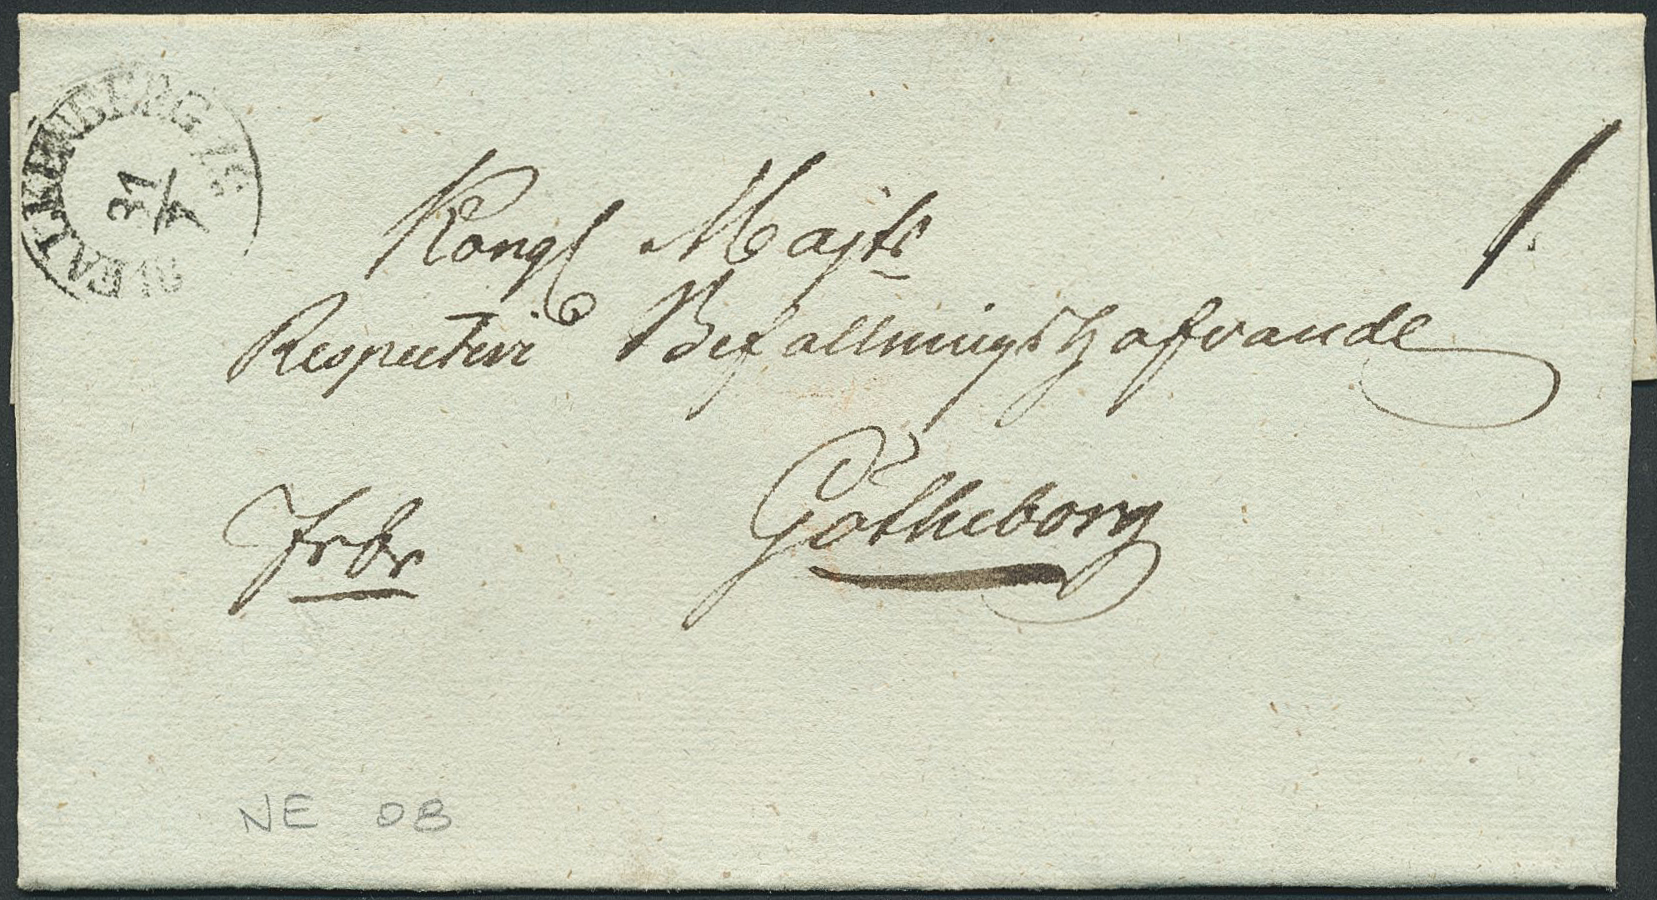 FALKENBERG
31/7
Kongl Majts
Respective Befallningshafvande
Götheborg
frbr
NE OB